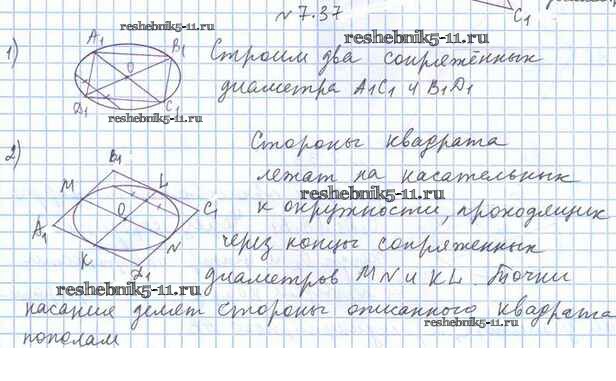 № 7.37
C₁
reshebnik5-11.ru
reshebnik5-11.ru
1)
A₁
B₁
O
D₁
C₁
Строим два сопряжённых
диаметра A₁C₁ и B₁D₁
reshebnik5-11.ru
2)
B₁
M
L
O
C₁
A₁
N
K
D₁
Стороны квадрата
лежат на касательных
reshebnik5-11.ru
к окружности, проходящих
через концы сопряженных
диаметров MN и KL. Точки
reshebnik5-11.ru
касания делят стороны описанного квадрата
reshebnik5-11.ru
пополам